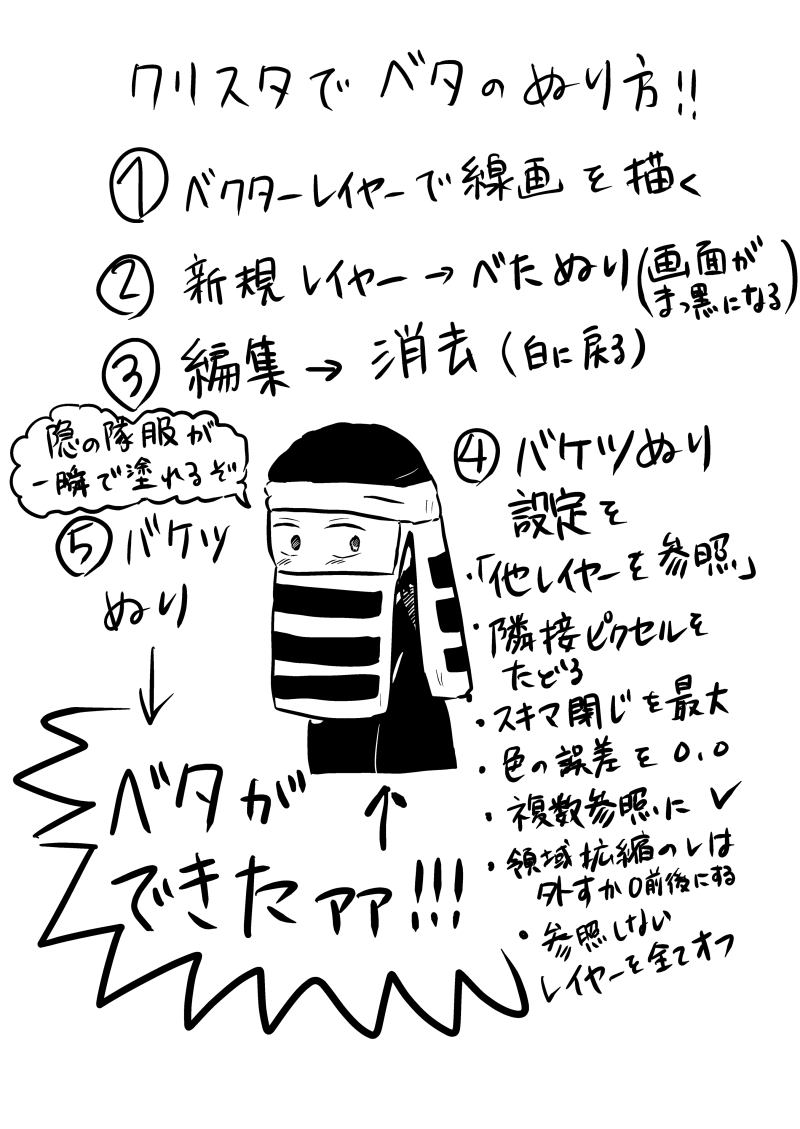 クリスタでベタのぬり方!!
①ベクターレイヤーで線画を描く
②新規レイヤー→べたぬり(画面が
まっ黒になる)
③編集→消去(白に戻る)
隠の隊服が
一瞬で塗れるぞ
④バケツぬり
設定を
・「他レイヤーを参照」
・隣接ピクセルを
たどる
・スキマ閉じを最大
・色の誤差を0.0
・複数参照に✓
・領域拡縮のレは
外すか0前後にする
・参照しない
レイヤーを全てオフ
⑤バケツ
ぬり
↓
ベタが
できたァァ!!!
↑